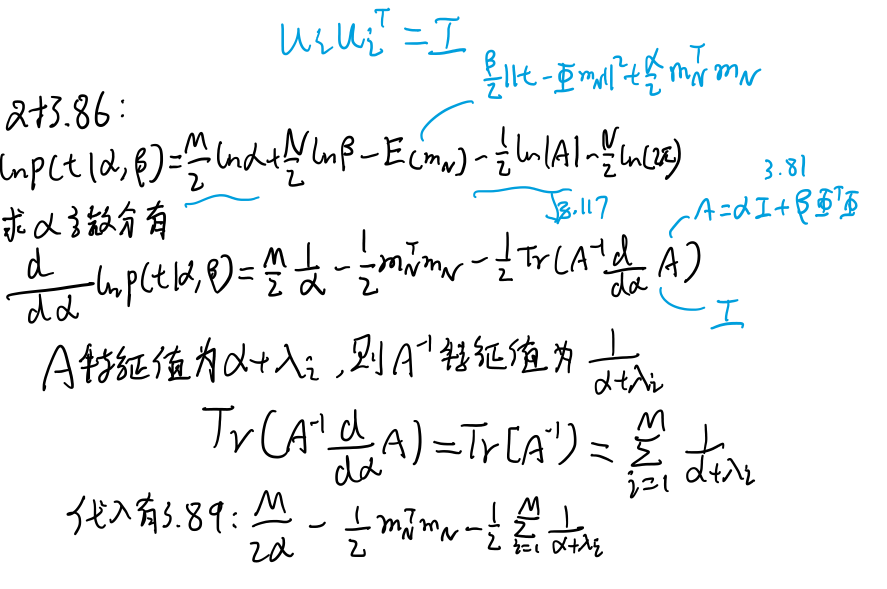 u_i u_i^T = I
β/2 ||t - Φm_N||² + α/2 m_N^T m_N
对3.86:
ln p(t|α,β) = M/2 lnα + N/2 lnβ - E(m_N) - 1/2 ln|A| - N/2 ln(2π)
3.81
求α导数分有
3.117
A = αI + βΦ^TΦ
d/dα ln p(t|α,β) = M/2 1/α - 1/2 m_N^T m_N - 1/2 Tr(A^-1 d/dα A)
I
A特征值为α+λ_i,则A^-1特征值为 1/(α+λ_i)
Tr(A^-1 d/dα A) = Tr[A^-1) = Σ_{i=1}^M 1/(α+λ_i)
代入有3.89: M/2α - 1/2 m_N^T m_N - 1/2 Σ_{i=1}^M 1/(α+λ_i)